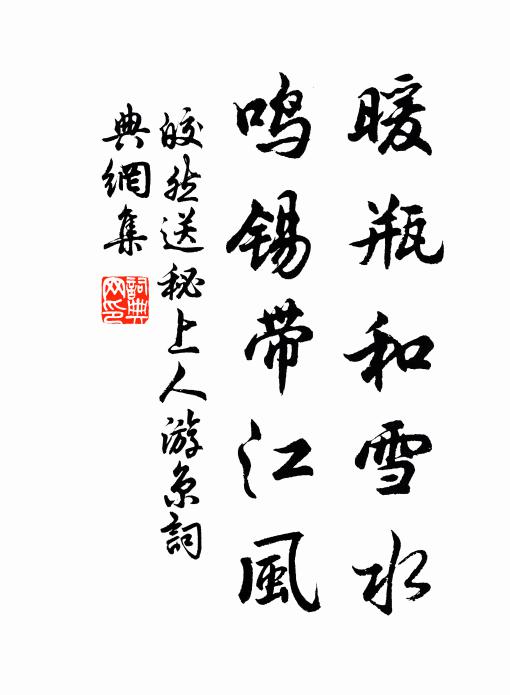 暖瓶和雪水
鸣锡带江風
皎然送秘上人游京詞
典網集
詞典
网印